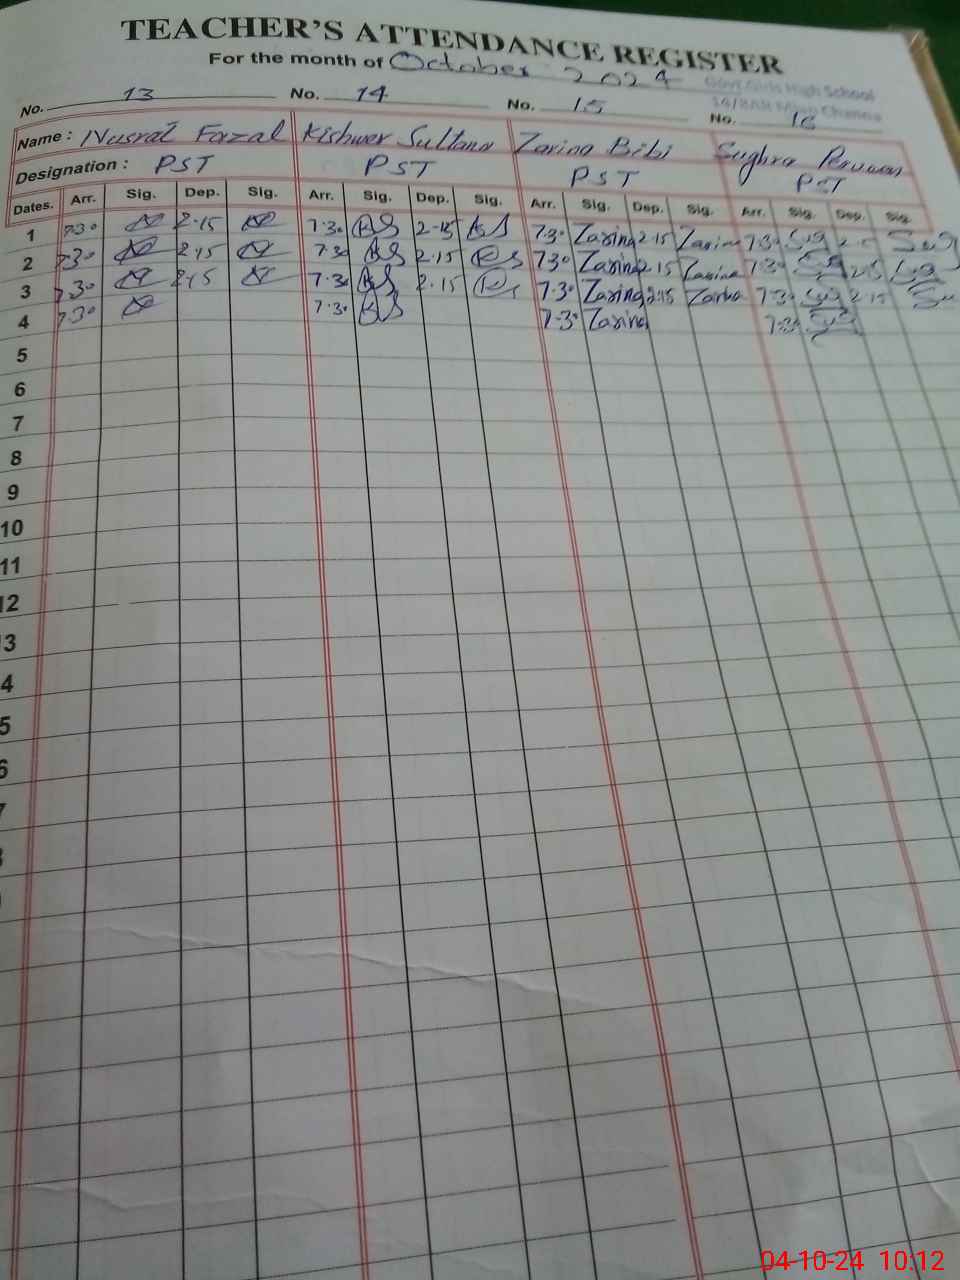 TEACHER'S ATTENDANCE REGISTER
For the month of October 2024
Govt Girls High School
No. 13 No. 14 No. 15 No. 16
Name : Nusrat Fazal Kishwer Sultana Zarina Bibi Sughra Perveen
Designation : PST PST PST PST
Dates. Arr. Sig. Dep. Sig. Arr. Sig. Dep. Sig. Arr. Sig. Dep. Sig. Arr. Sig. Dep. Sig.
1 7·30 2·15 7·30 KS 2·15 KS 7·30 Zarina 2·15 Zarina 7·30 Sug 2·15 Sug
2 7·30 2·15 7·30 KS 2·15 KS 7·30 Zarina 2·15 Zarina 7·30 Sug 2·15 Sug
3 7·30 2·15 7·30 KS 2·15 KS 7·30 Zarina 2·15 Zarina 7·30 Sug 2·15
4 7·30 7·30 KS 7·30 Zarina 7·30 Sug
5
6
7
8
9
10
11
12
3
4
5
6
7
04-10-24 10:12